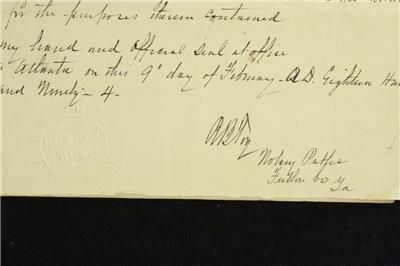 for the purposes therein contained
my hand and official Seal at office
Atlanta on this 9" day of February A.D. Eighteen Hu
and Ninety-4-
NOTARY
PUBLIC
Notary Public
Fulton Co Ga